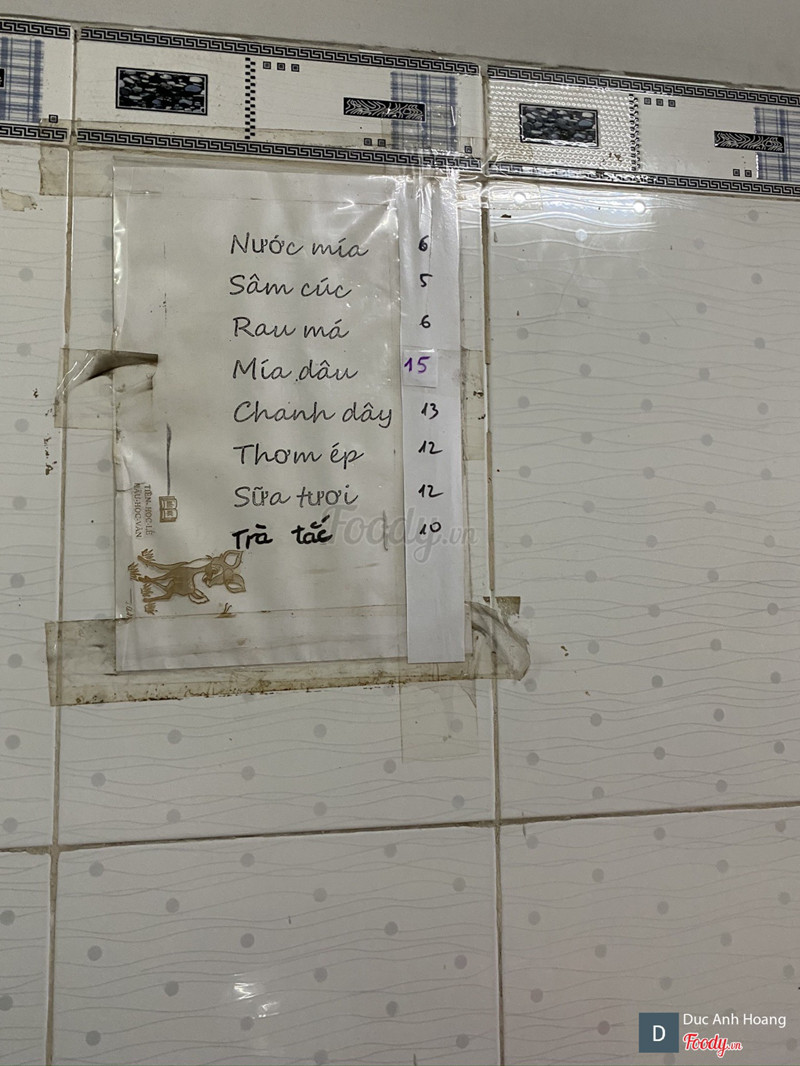 Nước mía 6
Sâm cúc 5
Rau má 6
Mía dâu 15
Chanh dây 13
Thơm ép 12
Sữa tươi 12
Trà tắc 10
TIÊN HỌC LỄ
HẬU HỌC VĂN
Foody.vn
D Duc Anh Hoang
Foody.vn